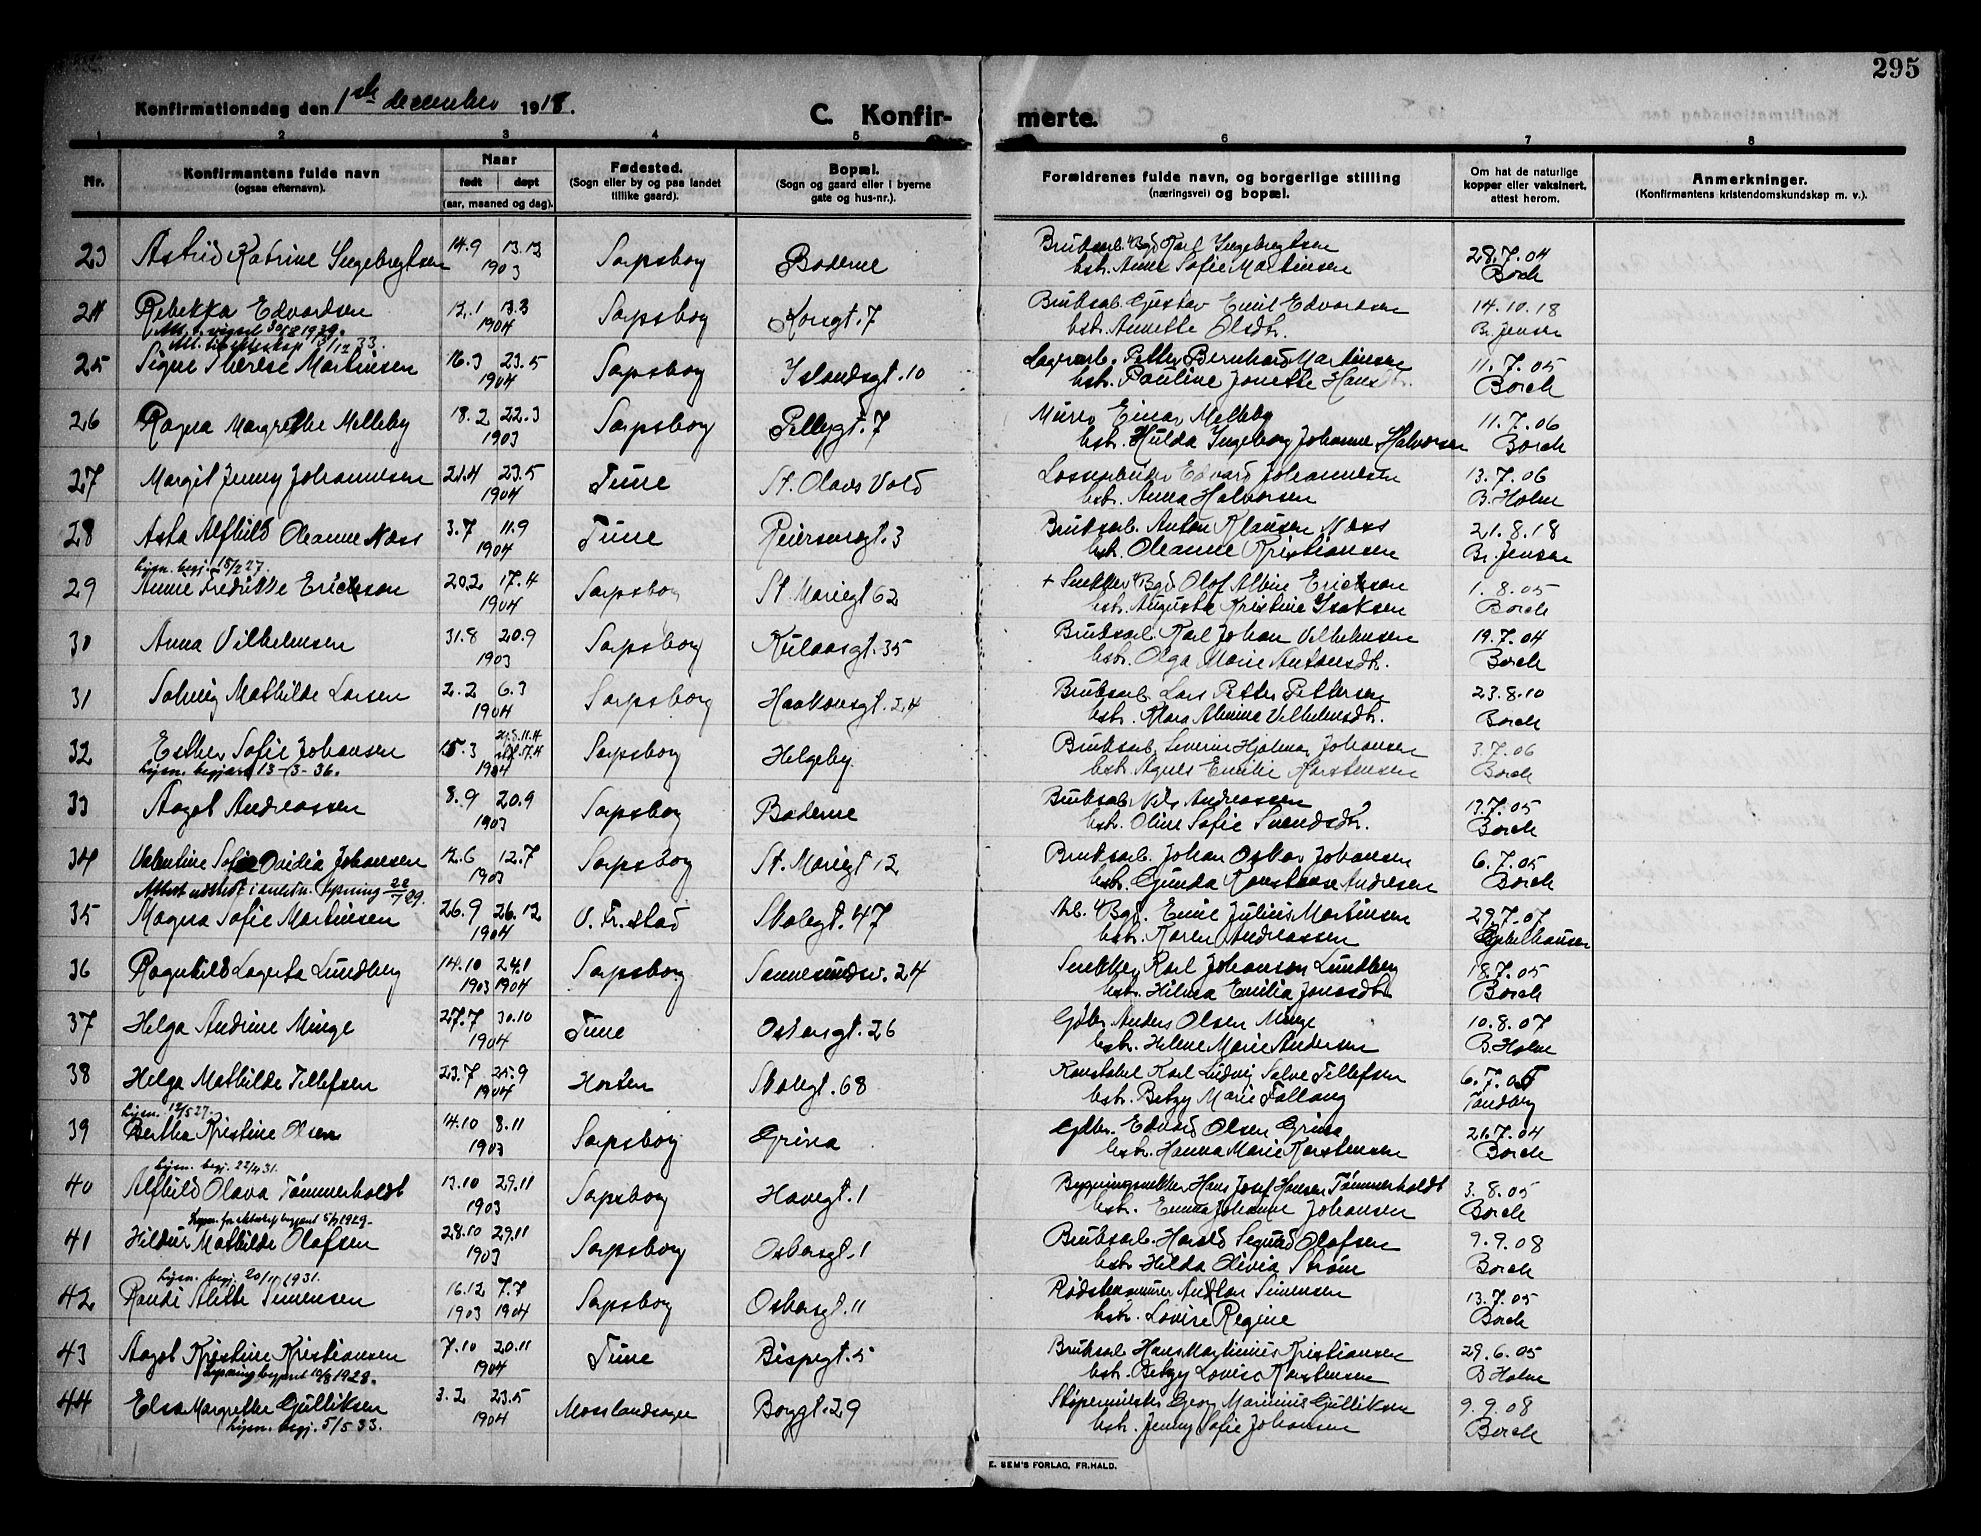 295
Konfirmationsdag den 1ste december 1918.
C. Konfir- merte.
1 2 3 4 5 6 7 8
Nr.
Konfirmantens fulde navn
(ogsaa efternavn).
Naar
født døpt
(aar, maaned og dag).
Fødested.
(Sogn eller by og paa landet
tillike gaard).
Bopæl.
(Sogn og gaard eller i byerne
gate og hus-nr.).
Forældrenes fulde navn, og borgerlige stilling
(næringsvei) og bopæl.
Om hat de naturlige
kopper eller vaksinert,
attest herom.
Anmerkninger.
(Konfirmantens kristendomskundskap m. v.).
23 Astrid Katrine Ingebregtsen 14.9 13.12 Sarpsborg Boderne Bruksarb. Karl Ingebregtsen 28.7.04
1903 hstr. Anne Sofie Martinsen Borch
24 Rebekka Edvardsen 12.1 13.3 Sarpsborg Korsgt. 7 Bruksarb. Gustav Emil Edvardsen 14.10.18
1904 hstr. Annette Olsdtr. Br. Jensen
25 Signe Therese Martinsen 16.3 23.5 Sarpsborg Islandsgt. 10 Lagerarb. Petter Bernhard Martinsen 11.7.05
1904 hstr. Pauline Jonette Hansdtr. Borch
26 Ragna Margrethe Melleby 18.2 22.3 Sarpsborg Pellygt. 7 Murer Einar Melleby 11.7.06
1903 hstr. Hulda Ingeborg Johanne Halvorsen Borch
27 Margit Jenny Johannesen 21.4 23.5 Tune St. Olavs Vold Lossearbeider Edvard Johannesen 13.7.06
1904 hstr. Anna Halvorsen B. Holm
28 Asta Alfhild Oleanne Næss 3.7 11.9 Tune Reiersensgt. 3 Bruksarb. Anton Klausen Næss 21.8.18
1904 hstr. Oleanne Kristiansen Br. Jensen
Lysn. begj. 15/2 27.
29 Anne Fredrikke Erickson 20.2 17.4 Sarpsborg St. Mariegt 62 + Snekker Olof Albin Erickson 1.8.05
1904 hstr. Augusta Kristine Isaksen Borch
30 Anna Vilhelmsen 31.8 20.9 Sarpsborg Kulaasgt. 35 Bruksarb. Karl Johan Vilhelmsen 19.7.04
1903 hstr. Olga Marie Antonsdtr. Borch
31 Solveig Mathilde Larsen 2.2 6.3 Sarpsborg Haakonsgt. 24 Bruksarb. Lars Petter Pettersen 23.8.10
1904 hstr. Klara Alvine Vilhelmsdtr. Borch
32 Esther Sofie Johansen 15.3 Sarpsborg Helgeby Bruksarb. Severin Hjalmar Johansen 3.7.06
Lysn. begjært 13-3-36. 1904 hstr. Agnes Emilie Karstensen Borch
33 Aagot Andreassen 8.9 20.9 Sarpsborg Boderne Bruksarb. Nils Andreassen 17.7.05
1903 hstr. Oline Sofie Svendsdtr. Borch
34 Valentine Sofie Ovidia Johansen 12.6 12.7 Sarpsborg St. Mariegt 12 Bruksarb. Johan Oskar Johansen 6.7.05
1903 hstr. Gunda Konstanse Andresen Borch
35 Magna Sofie Martinsen 26.9 26.12 V. Fr.stad Skolegt. 47 Arb. Emil Julius Martinsen 29.7.07
1904 hstr. Karen Andreassen
36 Ragnhild Lagerta Lundberg 14.10 24.1 Sarpsborg Sannesundsv. 24 Snekker Karl Johanson Lundberg 18.7.05
1903 1904 hstr. Hilma Emilia Jonsdtr. Borch
37 Helga Andrine Minge 27.7 30.10 Tune Oskarsgt. 26 Gdbr. Anders Olsen Minge 10.8.07
1904 hstr. Helene Marie Andersen B. Holm
38 Helga Mathilde Tellefsen 23.7 25.9 Horten Skolegt. 68 Konstabel Karl Ludvig Salve Tellefsen 6.7.05
1904 hstr. Betzy Marie Fallang Tandberg
Lysn. 12/5 27.
39 Bertha Kristine Olsen 14.10 8.11 Sarpsborg Grina Gdbr. Edvard Olsen Grina 21.7.04
1903 hstr. Hanna Marie Karstensen Borch
Lysn. begj. 22/4 31.
40 Alfhild Olava Tømmerholdt 13.10 29.11 Sarpsborg Havegt. 1 Bygningssnekker Hans Josef Hansen Tømmerholdt 3.8.05
1903 hstr. Emma Johanne Johansen Borch
41 Hildur Mathilde Olafsen 28.10 29.11 Sarpsborg Oskarsgt. 1 Bruksarb. Harald Sigurd Olafsen 9.9.08
1903 hstr. Hilda Olivia Strøm Borch
Lysn. begj. 20/11 1931.
42 Randi Alith Simensen 16.12 7.7 Sarpsborg Oskarsgt. 11 Anton Simensen 13.7.05
1903 1904 hstr. Lovise Regine Borch
43 Aagot Kristine Kristiansen 7.10 20.11 Tune Bispegt. 5 Bruksarb. Hans Martinius Kristiansen 29.6.05
Lysning begjært 10/8 1928. 1904 hstr. Betzy Lovise Karstensen B Holm
44 Elsa Margrethe Gulliksen 3.2 23.5 Mosslandsogn Borggt. 29 Støpemester Georg Marinius Gulliksen 9.9.08
Lysn. begj. 5/5 33. 1904 hstr. Jenny Sofie Johansen Borch
E. SEM'S FORLAG, FR.HALD.